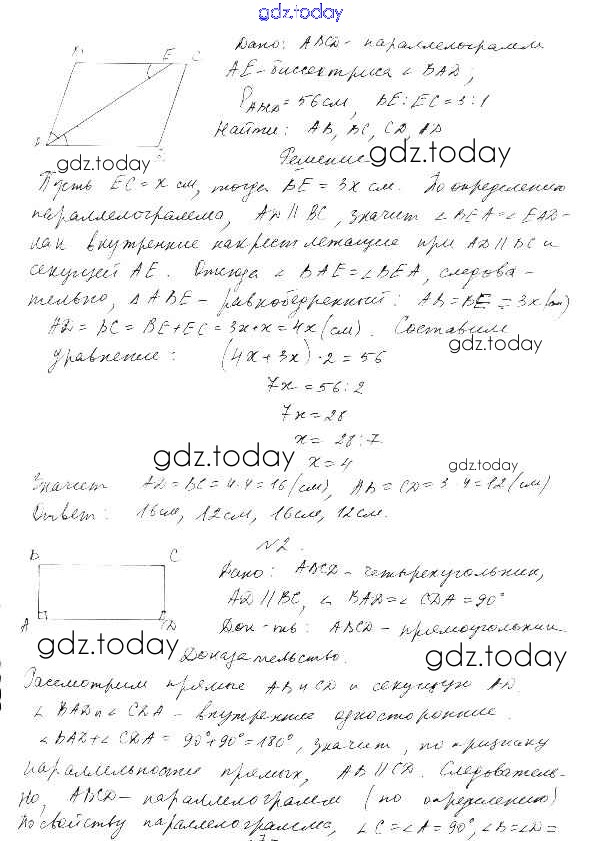 gdz.today
Дано: ABCD - параллелограмм
B E C
AE - биссектриса ∠ BAD;
P ABCD = 56 см, BE : EC = 3 : 1
Найти: AB, BC, CD, AD
A D
gdz.today
Решение
gdz.today
Пусть EC = x см, тогда BE = 3x см. По определению
параллелограмма, AD || BC, значит ∠BEA = ∠EAD -
как внутренние накрест лежащие при AD || BC и
секущей AE. Отсюда ∠ BAE = ∠BEA, следова-
тельно, △ ABE - равнобедренный: AB = BE = 3x (см)
AD = BC = BE + EC = 3x + x = 4x (см). Составим
gdz.today
уравнение: (4x + 3x) · 2 = 56
7x = 56 : 2
7x = 28
x = 28 : 7
gdz.today
x = 4
gdz.today
Значит AD = BC = 4 · 4 = 16 (см), AB = CD = 3 · 4 = 12 (см)
Ответ: 16 см, 12 см, 16 см, 12 см.
N 2.
B C
Дано: ABCD - четырехугольник,
AD || BC, ∠ BAD = ∠ CDA = 90°
A D
Док-ть: ABCD - прямоугольник.
gdz.today
Доказательство.
gdz.today
Рассмотрим прямые AB и CD и секущую AD.
∠ BAD и ∠ CDA - внутренние односторонние.
∠ BAD + ∠ CDA = 90° + 90° = 180°, значит, по признаку
параллельности прямых, AB || CD. Следователь-
но, ABCD - параллелограмм (по определению)
По свойству параллелограмма, ∠C = ∠A = 90°, ∠B = ∠D =